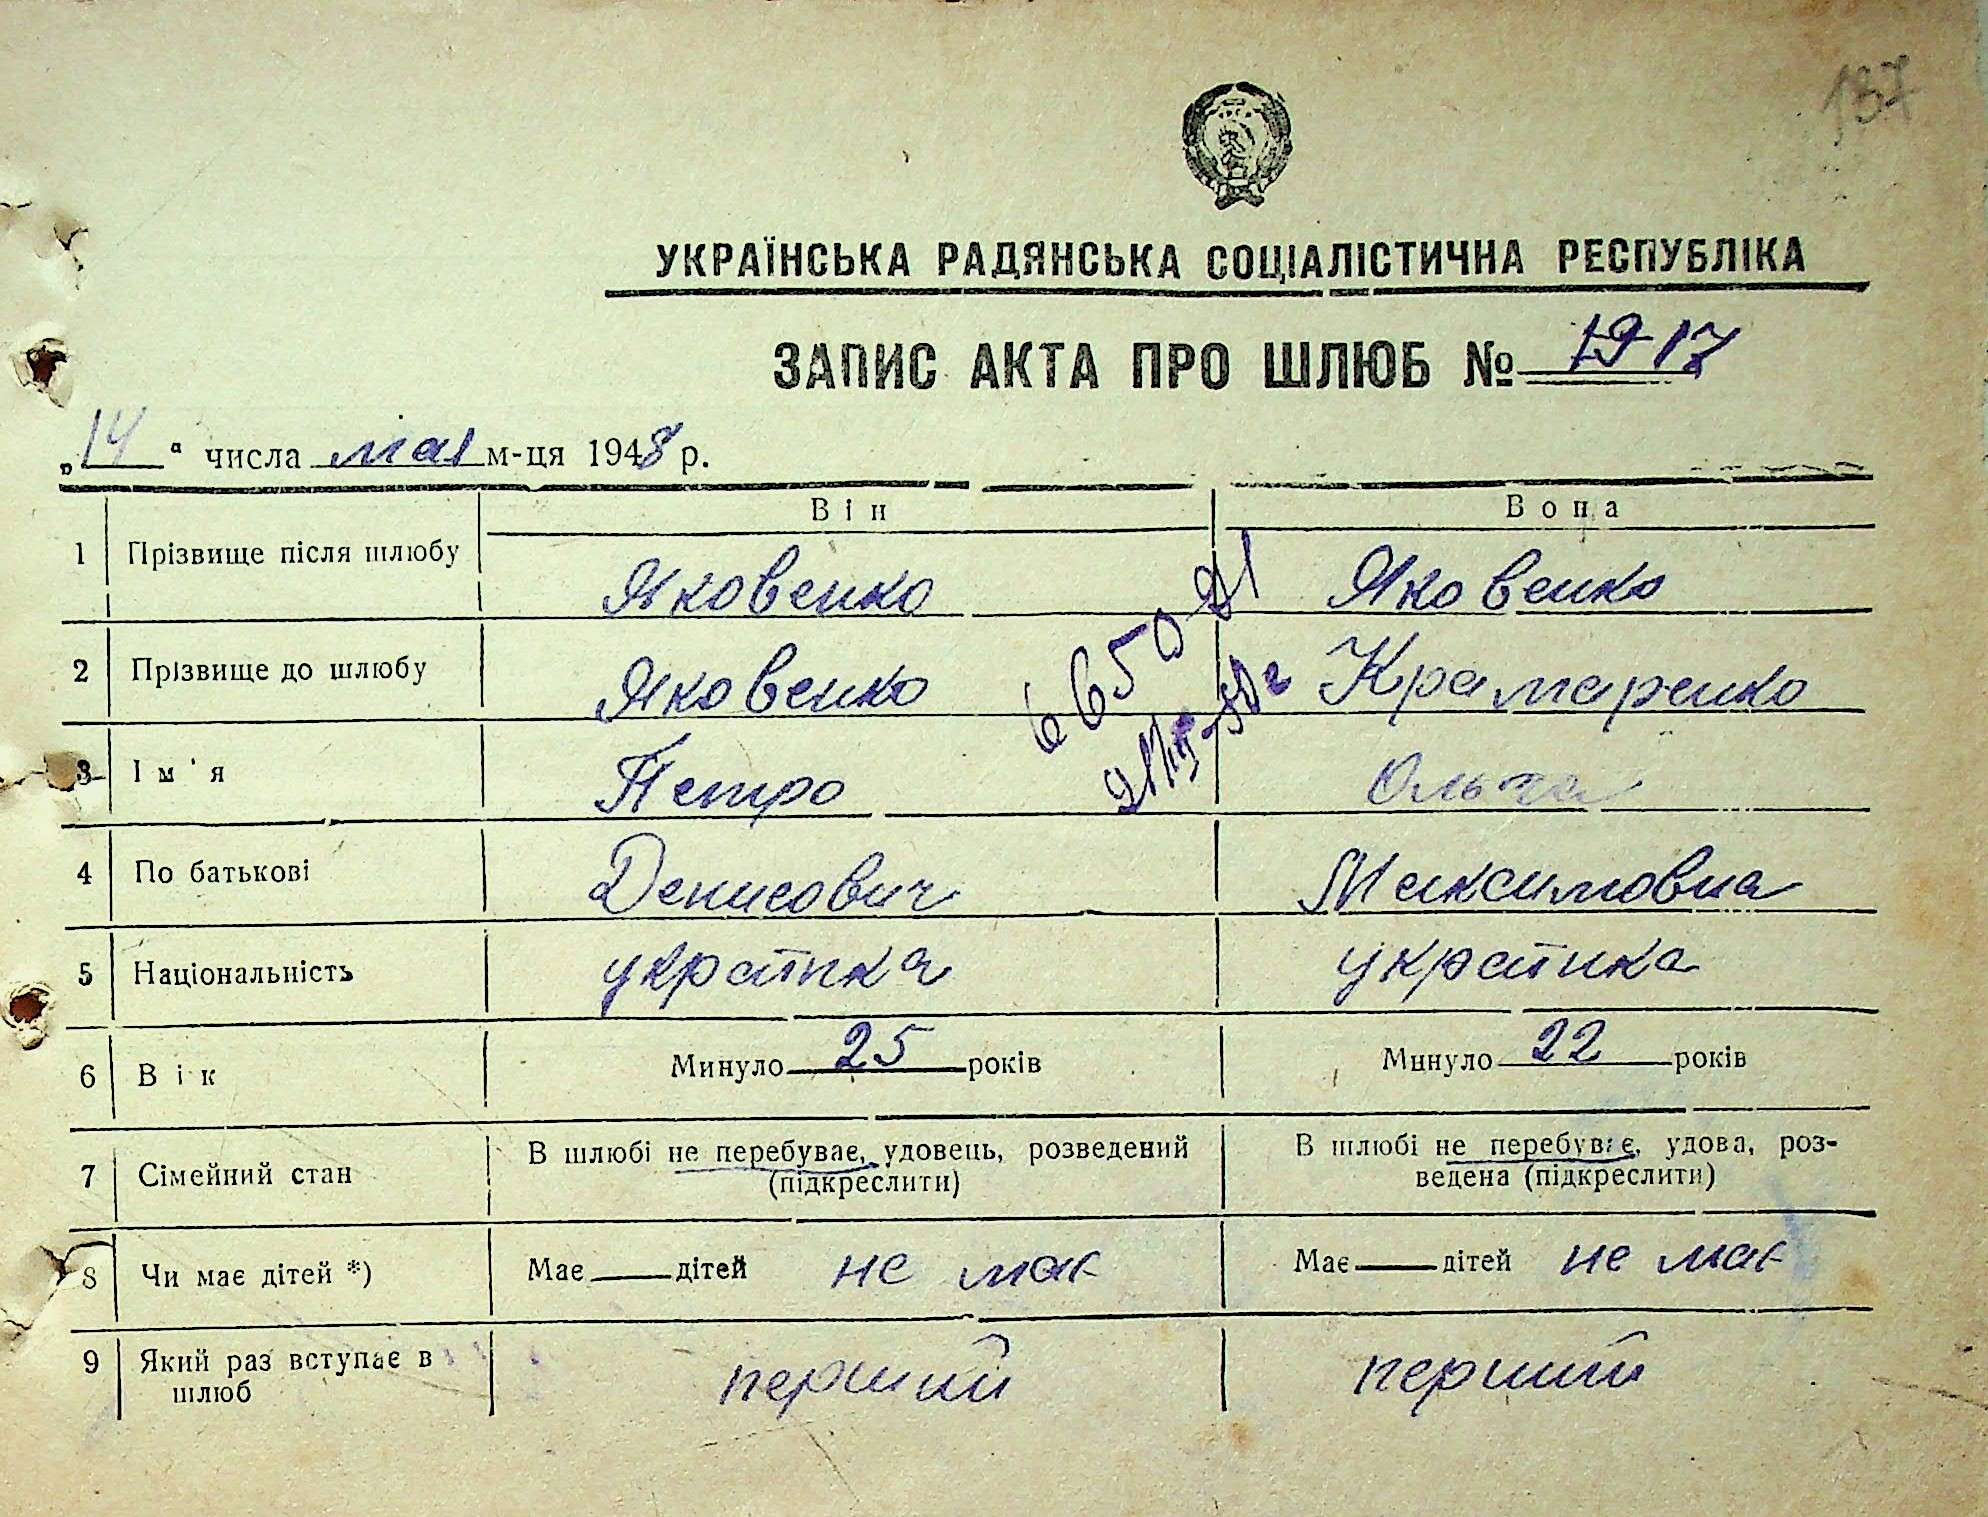 137
УКРАЇНСЬКА РАДЯНСЬКА СОЦІАЛІСТИЧНА РЕСПУБЛІКА
ЗАПИС АКТА ПРО ШЛЮБ № 1917
„14“ числа мая м-ця 1948 р.
Він Вона
1 Прізвище після шлюбу Яковенко Яковенко
2 Прізвище до шлюбу Яковенко Крамаренко
665021
3 Ім'я Петро Ольга
4 По батькові Денисович Максимовна
5 Національність українка українка
6 Вік Минуло 25 років Минуло 22 років
7 Сімейний стан В шлюбі не перебуває, удовець, розведений (підкреслити) В шлюбі не перебуває, удова, роз-
ведена (підкреслити)
8 Чи має дітей *) Має дітей не має Має дітей не має
9 Який раз вступає в шлюб перший перший